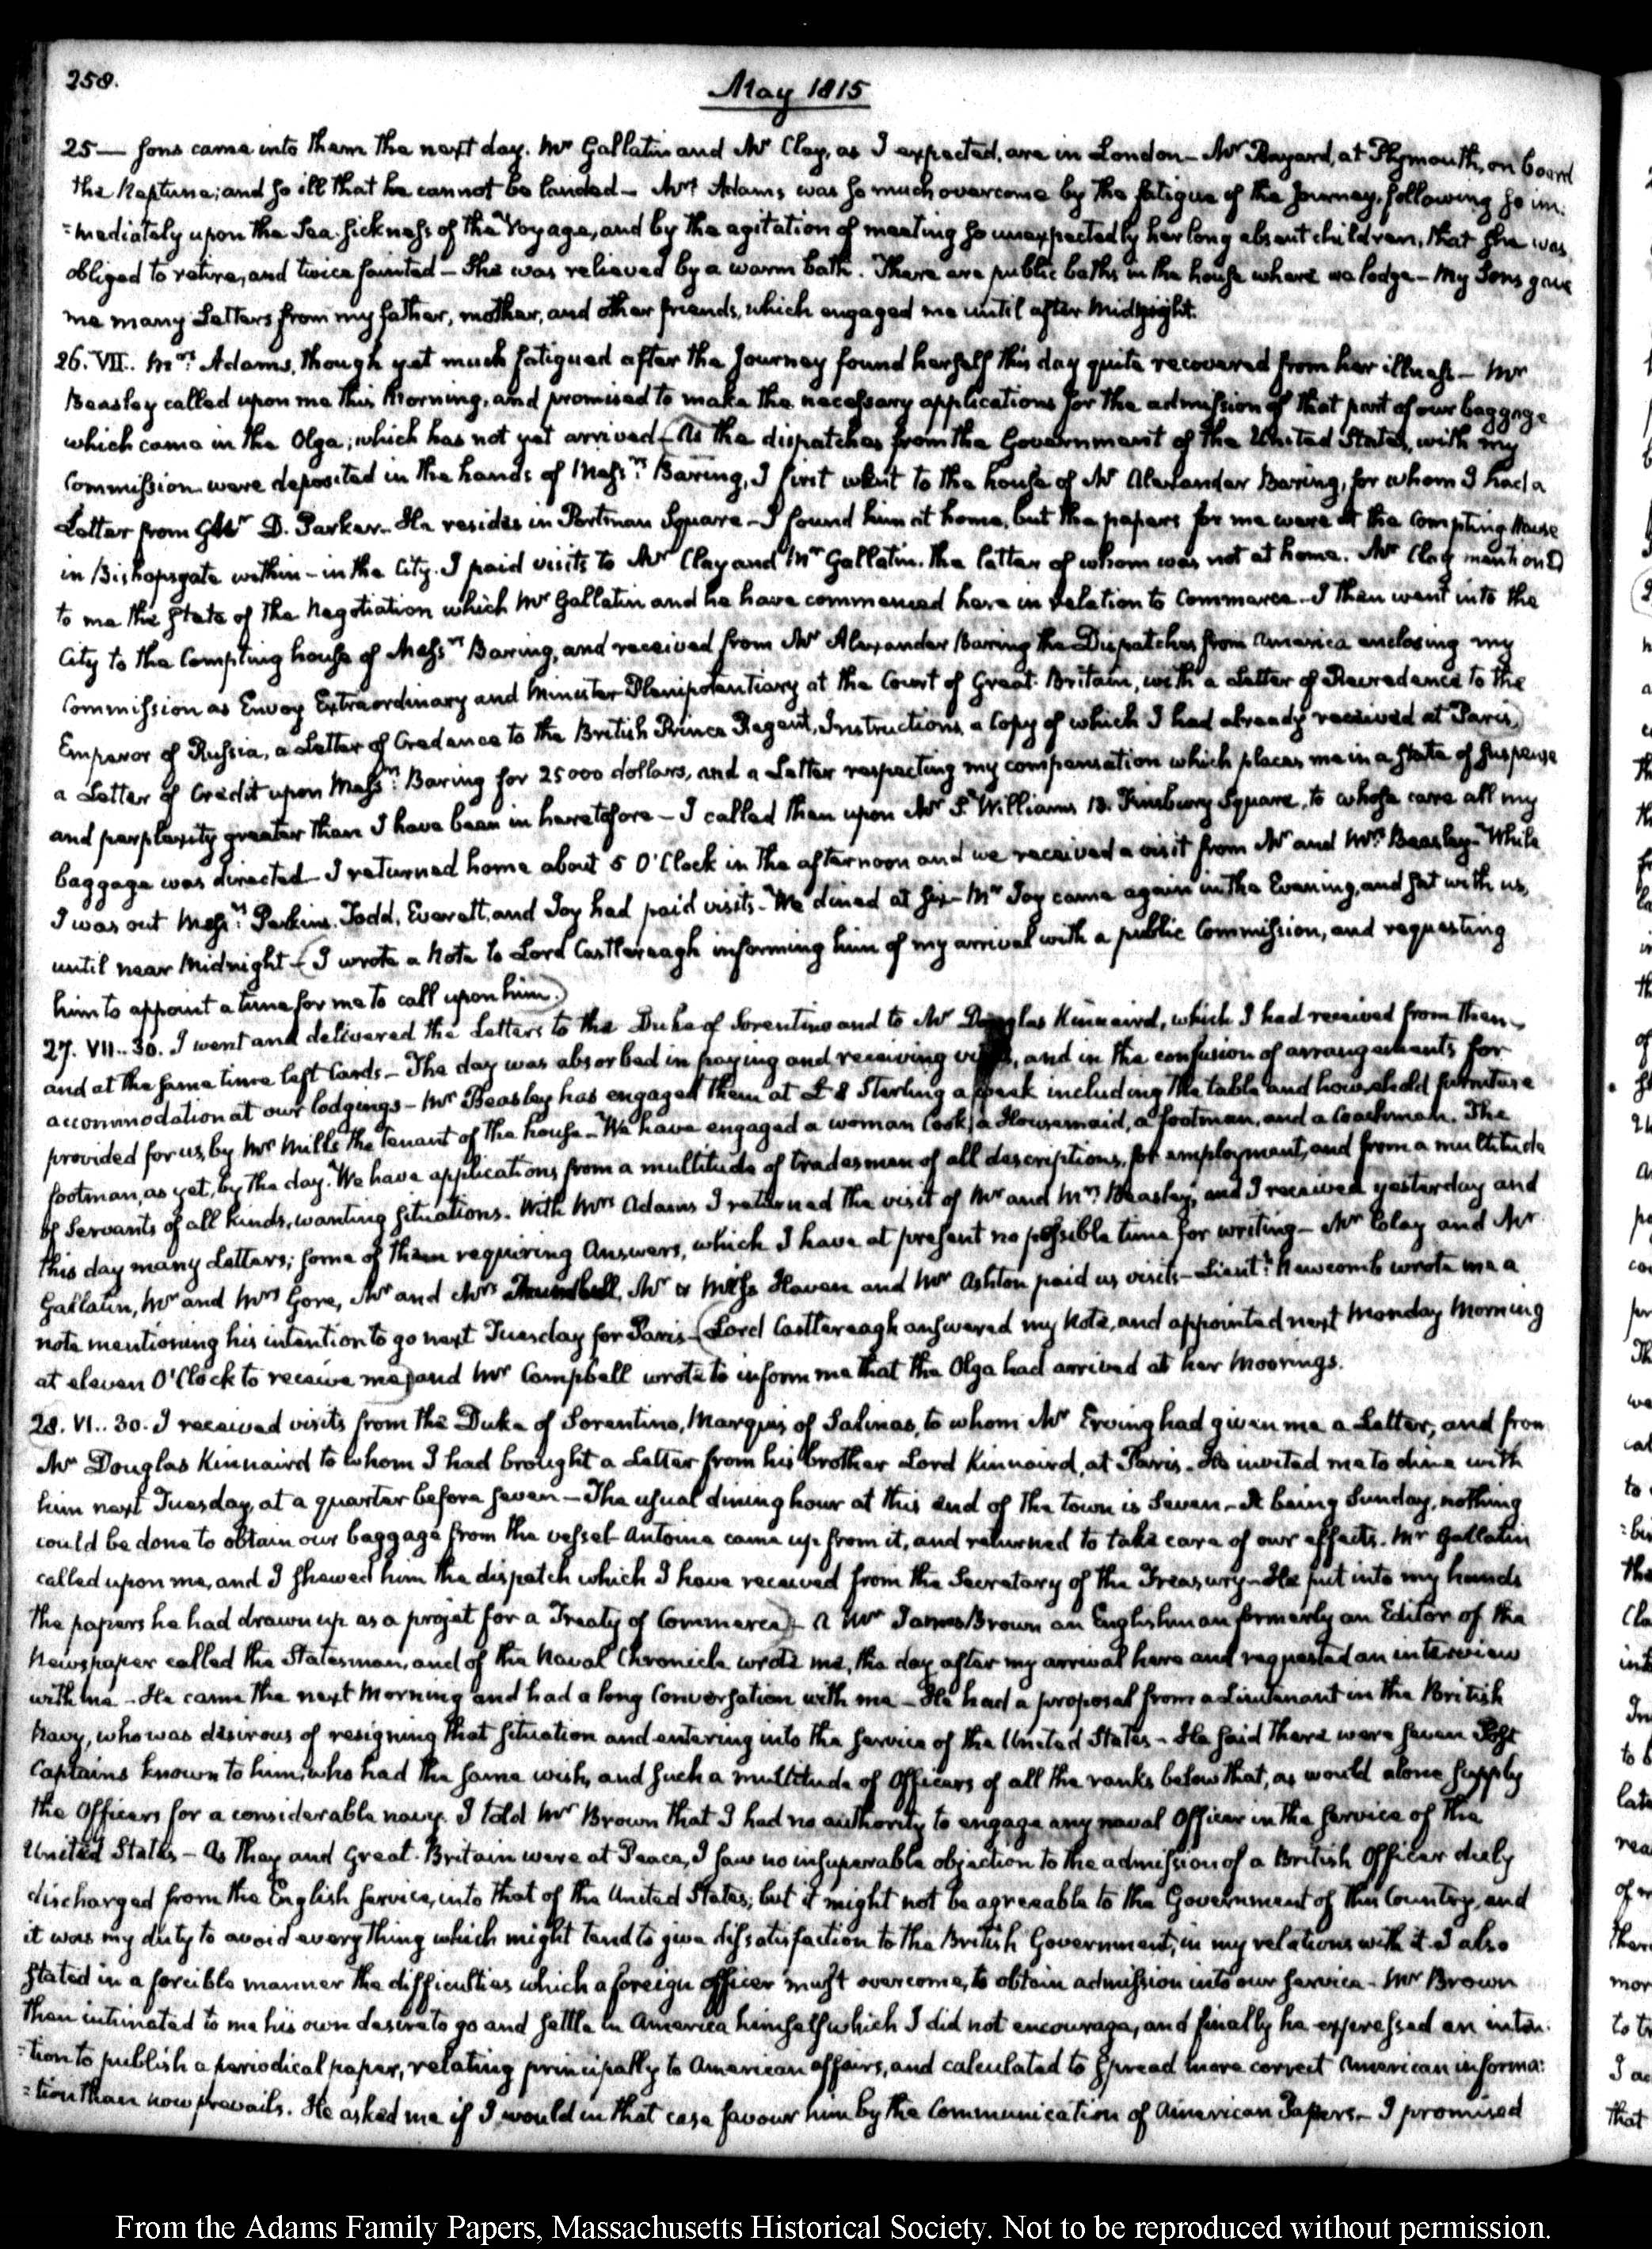 258.
May 1815
25— sons came into them the next day. Mr Gallatin and Mr Clay, as I expected, are in London— Mr Bayard, at Plymouth, on board
the Neptune; and so ill that he cannot be landed— Mrs Adams was so much overcome by the fatigue of the Journey, following so im:
:mediately upon the Sea-sickness of the Voyage, and by the agitation of meeting so unexpectedly her long absent children, that she was
obliged to retire, and twice fainted— She was relieved by a warm bath. There are public baths in the house where we lodge— My Sons gave
me many Letters from my father, mother, and other friends, which engaged me until after Midnight.
26. VII.. Mrs: Adams, though yet much fatigued after the Journey found herself this day quite recovered from her illness— Mr
Beasley called upon me this Morning, and promised to make the necessary applications for the admission of that part of our baggage
which came in the Olga; which has not yet arrived— (As the dispatches from the Government of the United States, with my
Commission were deposited in the hands of Messrs: Baring, I first went to the house of Mr Alexander Baring, for whom I had a
Letter from Mr D. Parker— He resides in Portman Square— I found him at home, but the papers for me were at the Compting House
in Bishopsgate within— in the City. I paid visits to Mr Clay and Mr Gallatin. the latter of whom was not at home. Mr Clay mentioned
to me the state of the Negotiation which Mr Gallatin and he have commenced here in relation to Commerce— I then went into the
City to the Compting house of Messrs Baring, and received from Mr Alexander Baring the Dispatches from America enclosing my
Commission as Envoy Extraordinary and Minister Plenipotentiary at the Court of Great-Britain, with a Letter of Recredence to the
Emperor of Russia, a Letter of Credence to the British Prince Regent, Instructions, a Copy of which I had already received at Paris,)
a Letter of Credit upon Messrs: Baring for 25000 dollars, and a Letter respecting my compensation which places me in a state of suspense
and perplexity greater than I have been in heretofore— I called then upon Mr S. Williams 13. Finsbury Square, to whose care all my
baggage was directed— I returned home about 5 O'Clock in the afternoon and we received a visit from Mr and Mrs: Beasley— While
I was out Messrs: Perkins, Todd, Everett, and Joy had paid visits— We dined at six— Mr Joy came again in the Evening, and sat with us,
until near Midnight— (I wrote a Note to Lord Castlereagh informing him of my arrival with a public Commission, and requesting
him to appoint a time for me to call upon him.)
27. VII..30. I went and delivered the Letters to the Duke of Sorentino and to Mr Douglas Kinnaird, which I had received from them,
and at the same time left Cards— The day was absorbed in paying and receiving visits, and in the confusion of arrangements for
accommodation at our lodgings— Mr Beasley has engaged them at £8 Sterling a week including the table and household furniture
provided for us, by Mr Mills the tenant of the house— We have engaged a woman Cook, a Housemaid, a footman, and a Coachman. The
footman, as yet, by the day. We have applications from a multitude of tradesmen of all descriptions, for employment, and from a multitude
of Servants of all kinds, wanting situations. With Mrs Adams I returned the visit of Mr and Mrs: Beasley, and I received yesterday and
this day many Letters; some of them requiring Answers, which I have at present no possible time for writing— Mr Clay and Mr
Gallatin, Mr and Mrs Gore, Mr and Mrs Trumbull, Mr & Miss Haven and Mr Ashton paid us visits— Lieut: Newcomb wrote me a
note mentioning his intention to go next Tuesday for Paris— (Lord Castlereagh answered my Note, and appointed next Monday Morning
at eleven O'Clock to receive me) and Mr Campbell wrote to inform me that the Olga had arrived at her Moorings.
28. VI..30. I received visits from the Duke of Sorentino, Marquis of Salinas, to whom Mr Erving had given me a Letter, and from
Mr Douglas Kinnaird to whom I had brought a Letter from his brother Lord Kinnaird, at Paris. He invited me to dine with
him next Tuesday, at a quarter before seven— The usual dining hour at this end of the town is Seven— It being Sunday, nothing
could be done to obtain our baggage from the vessel— Antoine came up from it, and returned to take care of our effects. Mr Gallatin
called upon me, and I shewed him the dispatch which I have received from the Secretary of the Treasury— He put into my hands
the papers he had drawn up as a projet for a Treaty of Commerce)— A Mr James Brown an Englishman formerly an Editor of the
Newspaper called the Statesman, and of the Naval Chronicle wrote me, the day after my arrival here and requested an interview
with me— He came the next Morning and had a long Conversation with me— He had a proposal from a Lieutenant in the British
Navy, who was desirous of resigning that situation and entering into the service of the United States— He said there were seven Post
Captains known to him, who had the same wish, and such a multitude of Officers of all the ranks below that, as would alone supply
the Officers for a considerable navy. I told Mr Brown that I had no authority to engage any naval Officer in the service of the
United States— As they and Great-Britain were at Peace, I saw no insuperable objection to the admission of a British Officer duly
discharged from the English service, into that of the United States; but it might not be agreeable to the Government of this Country, and
it was my duty to avoid every thing which might tend to give dissatisfaction to the British Government, in my relations with it. I also
stated in a forcible manner the difficulties which a foreign officer must overcome, to obtain admission into our service— Mr Brown
then intimated to me his own desire to go and settle in America himself which I did not encourage, and finally he expressed an inten:
:tion to publish a periodical paper, relating principally to American affairs, and calculated to spread more correct American informa:
:tion than now prevails. He asked me if I would in that case favour him by the Communication of American Papers— I promised
From the Adams Family Papers, Massachusetts Historical Society. Not to be reproduced without permission.